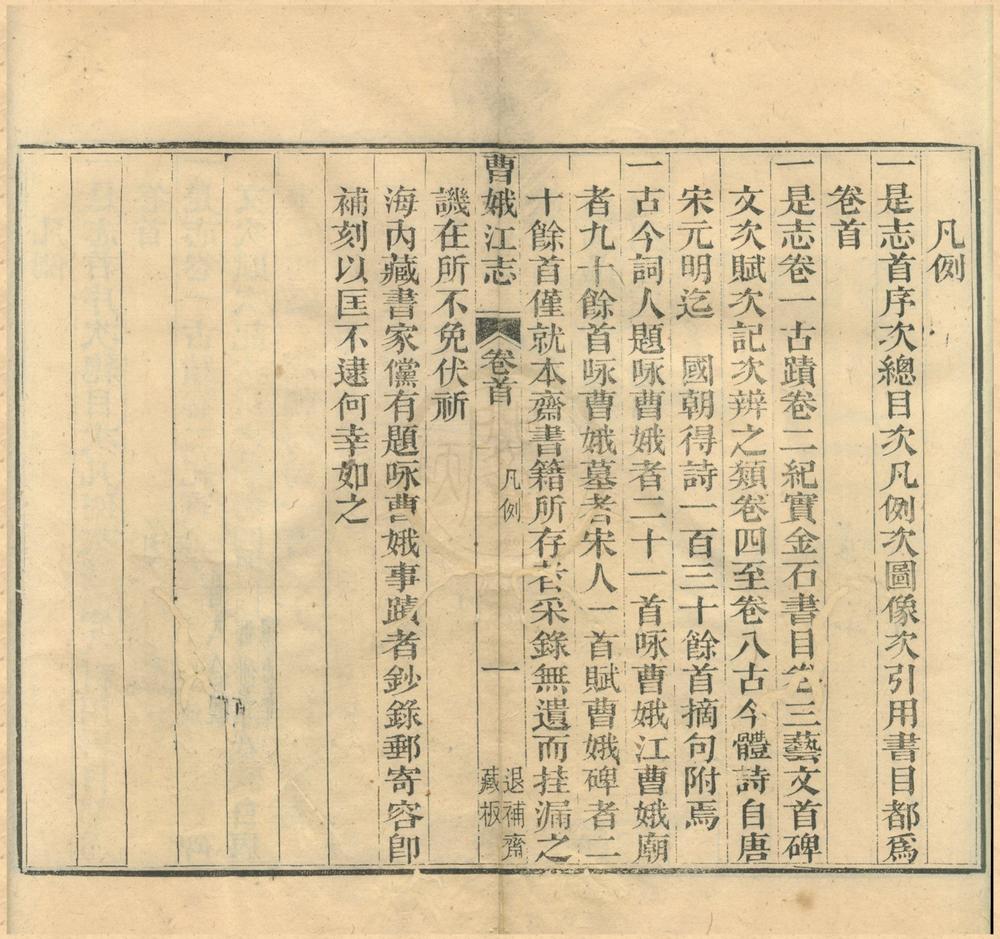 凡例
一是志首序次總目次凡例次圖像次引用書目都爲
卷首
一是志卷一古蹟卷二紀實金石書目卷三藝文首碑
文次賦次記次辨之類卷四至卷八古今體詩自唐
宋元明迄　國朝得詩一百三十餘首摘句附焉
一古今詞人題咏曹娥者二十一首咏曹娥江曹娥廟
者九十餘首咏曹娥墓者宋人一首賦曹娥碑者二
十餘首僅就本齋書籍所存者采錄無遺而挂漏之
曹娥江志　卷首　凡例　一　退補齋藏板
譏在所不免伏祈
海內藏書家儻有題咏曹娥事蹟者鈔錄郵寄容卽
補刻以匡不逮何幸如之